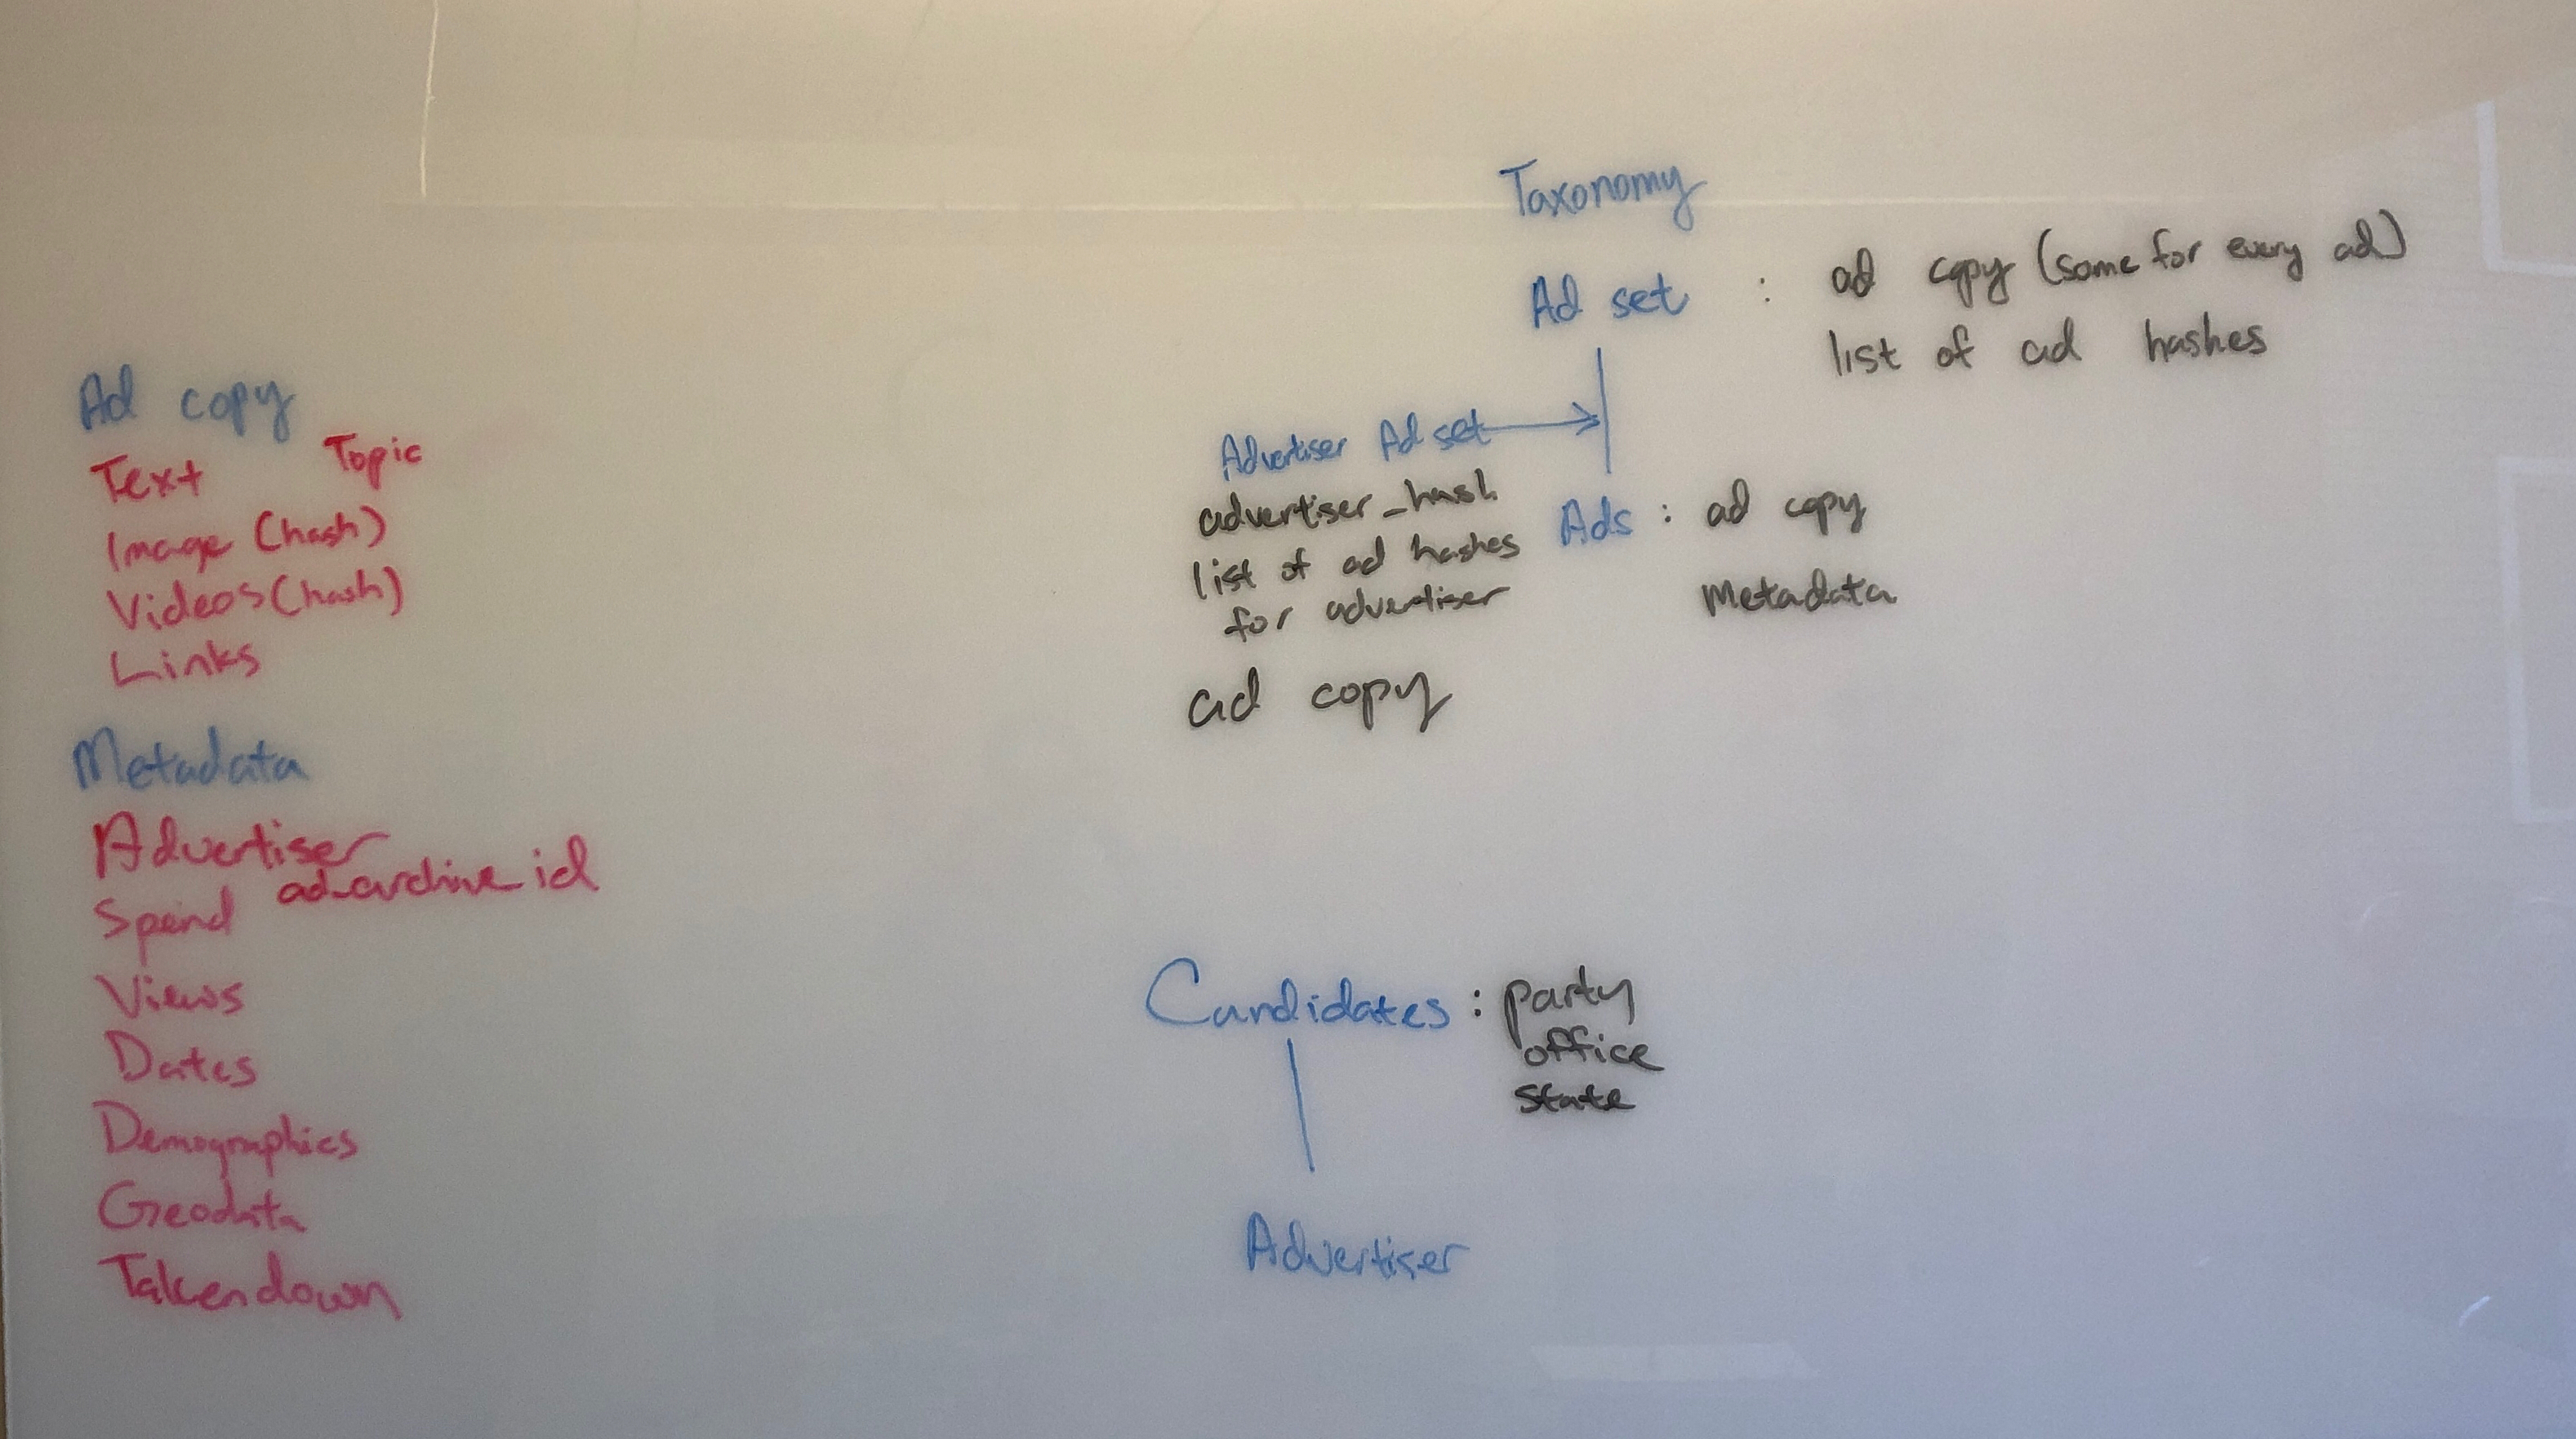 Ad copy
Text Topic
Image (hash)
Videos (hash)
Links
Metadata
Advertiser
ad_archive_id
Spend
Views
Dates
Demographics
Geodata
Takendown
Taxonomy
Ad set : ad copy (same for every ad)
list of ad hashes
Advertiser Ad set
advertiser_hash
list of ad hashes
for advertiser
ad copy
Ads : ad copy
Metadata
Candidates : party
office
state
Advertiser